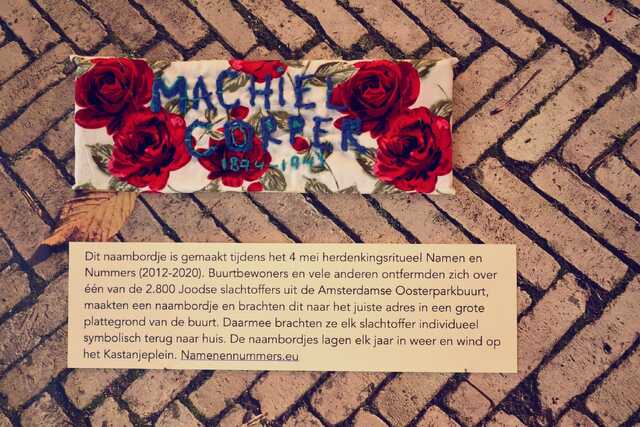 MACHIEL
CORPER
Dit naambordje is gemaakt tijdens het 4 mei herdenkingsritueel Namen en
Nummers (2012-2020). Buurtbewoners en vele anderen ontfermden zich over
één van de 2.800 Joodse slachtoffers uit de Amsterdamse Oosterparkbuurt,
maakten een naambordje en brachten dit naar het juiste adres in een grote
plattegrond van de buurt. Daarmee brachten ze elk slachtoffer individueel
symbolisch terug naar huis. De naambordjes lagen elk jaar in weer en wind op
het Kastanjeplein. Namenennummers.eu